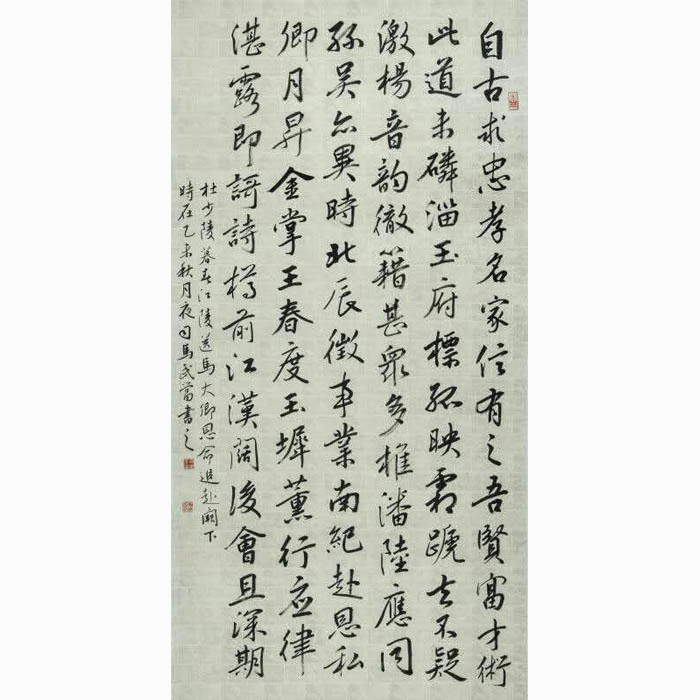 自古求忠孝名家信有之吾賢富才術
此道未磷淄玉府標孤映霜蹏去不疑
激楊音韵徹籍甚眾多推潘陸應同
孫吳亦異時北辰徵事業南紀赴恩私
卿月昇金掌王春度玉墀薰行应律
湛露即謌詩樽前江漢闊後會且深期
杜少陵暮春江陵送馬大卿恩命追赴闕下
時在乙未秋月夜司馬武當書之